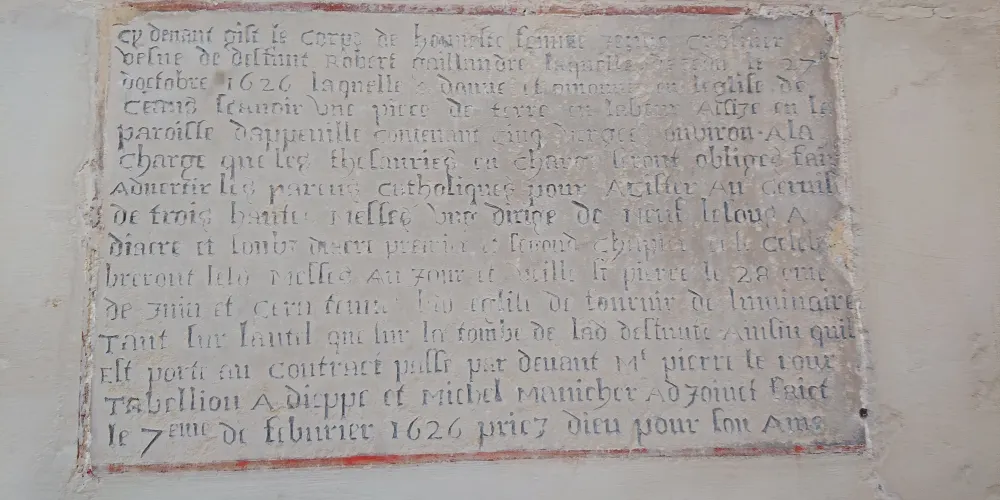 cy denant gist le corps de honneste femme
vefue de deffunt Robert Gaillandre laquelle le 27
doctobre 1626 laquelle a donne et omone en leglise de
ceans scauoir vne piece de terre en labeur Assize en la
paroisse dappeuille contenant cinq verges enuiron A la
charge que les thesauries en charge seront obliges fair
Aduertir les parens catholiques pour Assister Au seruis
de trois hautes Messes vne dirige de neuf lesons A
diacre et soubz diacre premier et second et le cele
breront lesd Messes Au Jour et veille st pierre le 28 eme
de Juin et sera tenu lad eglise de fournir de luminaire
Tant sur lautel que sur la tombe de lad deffunte Ainsin quil
Est porte au contract passe par deuant Mt pierre le roux
Tabellion A dieppe et Michel Manicher AdJoinct faict
le 7eme de feburier 1626 priez dieu pour son Ame